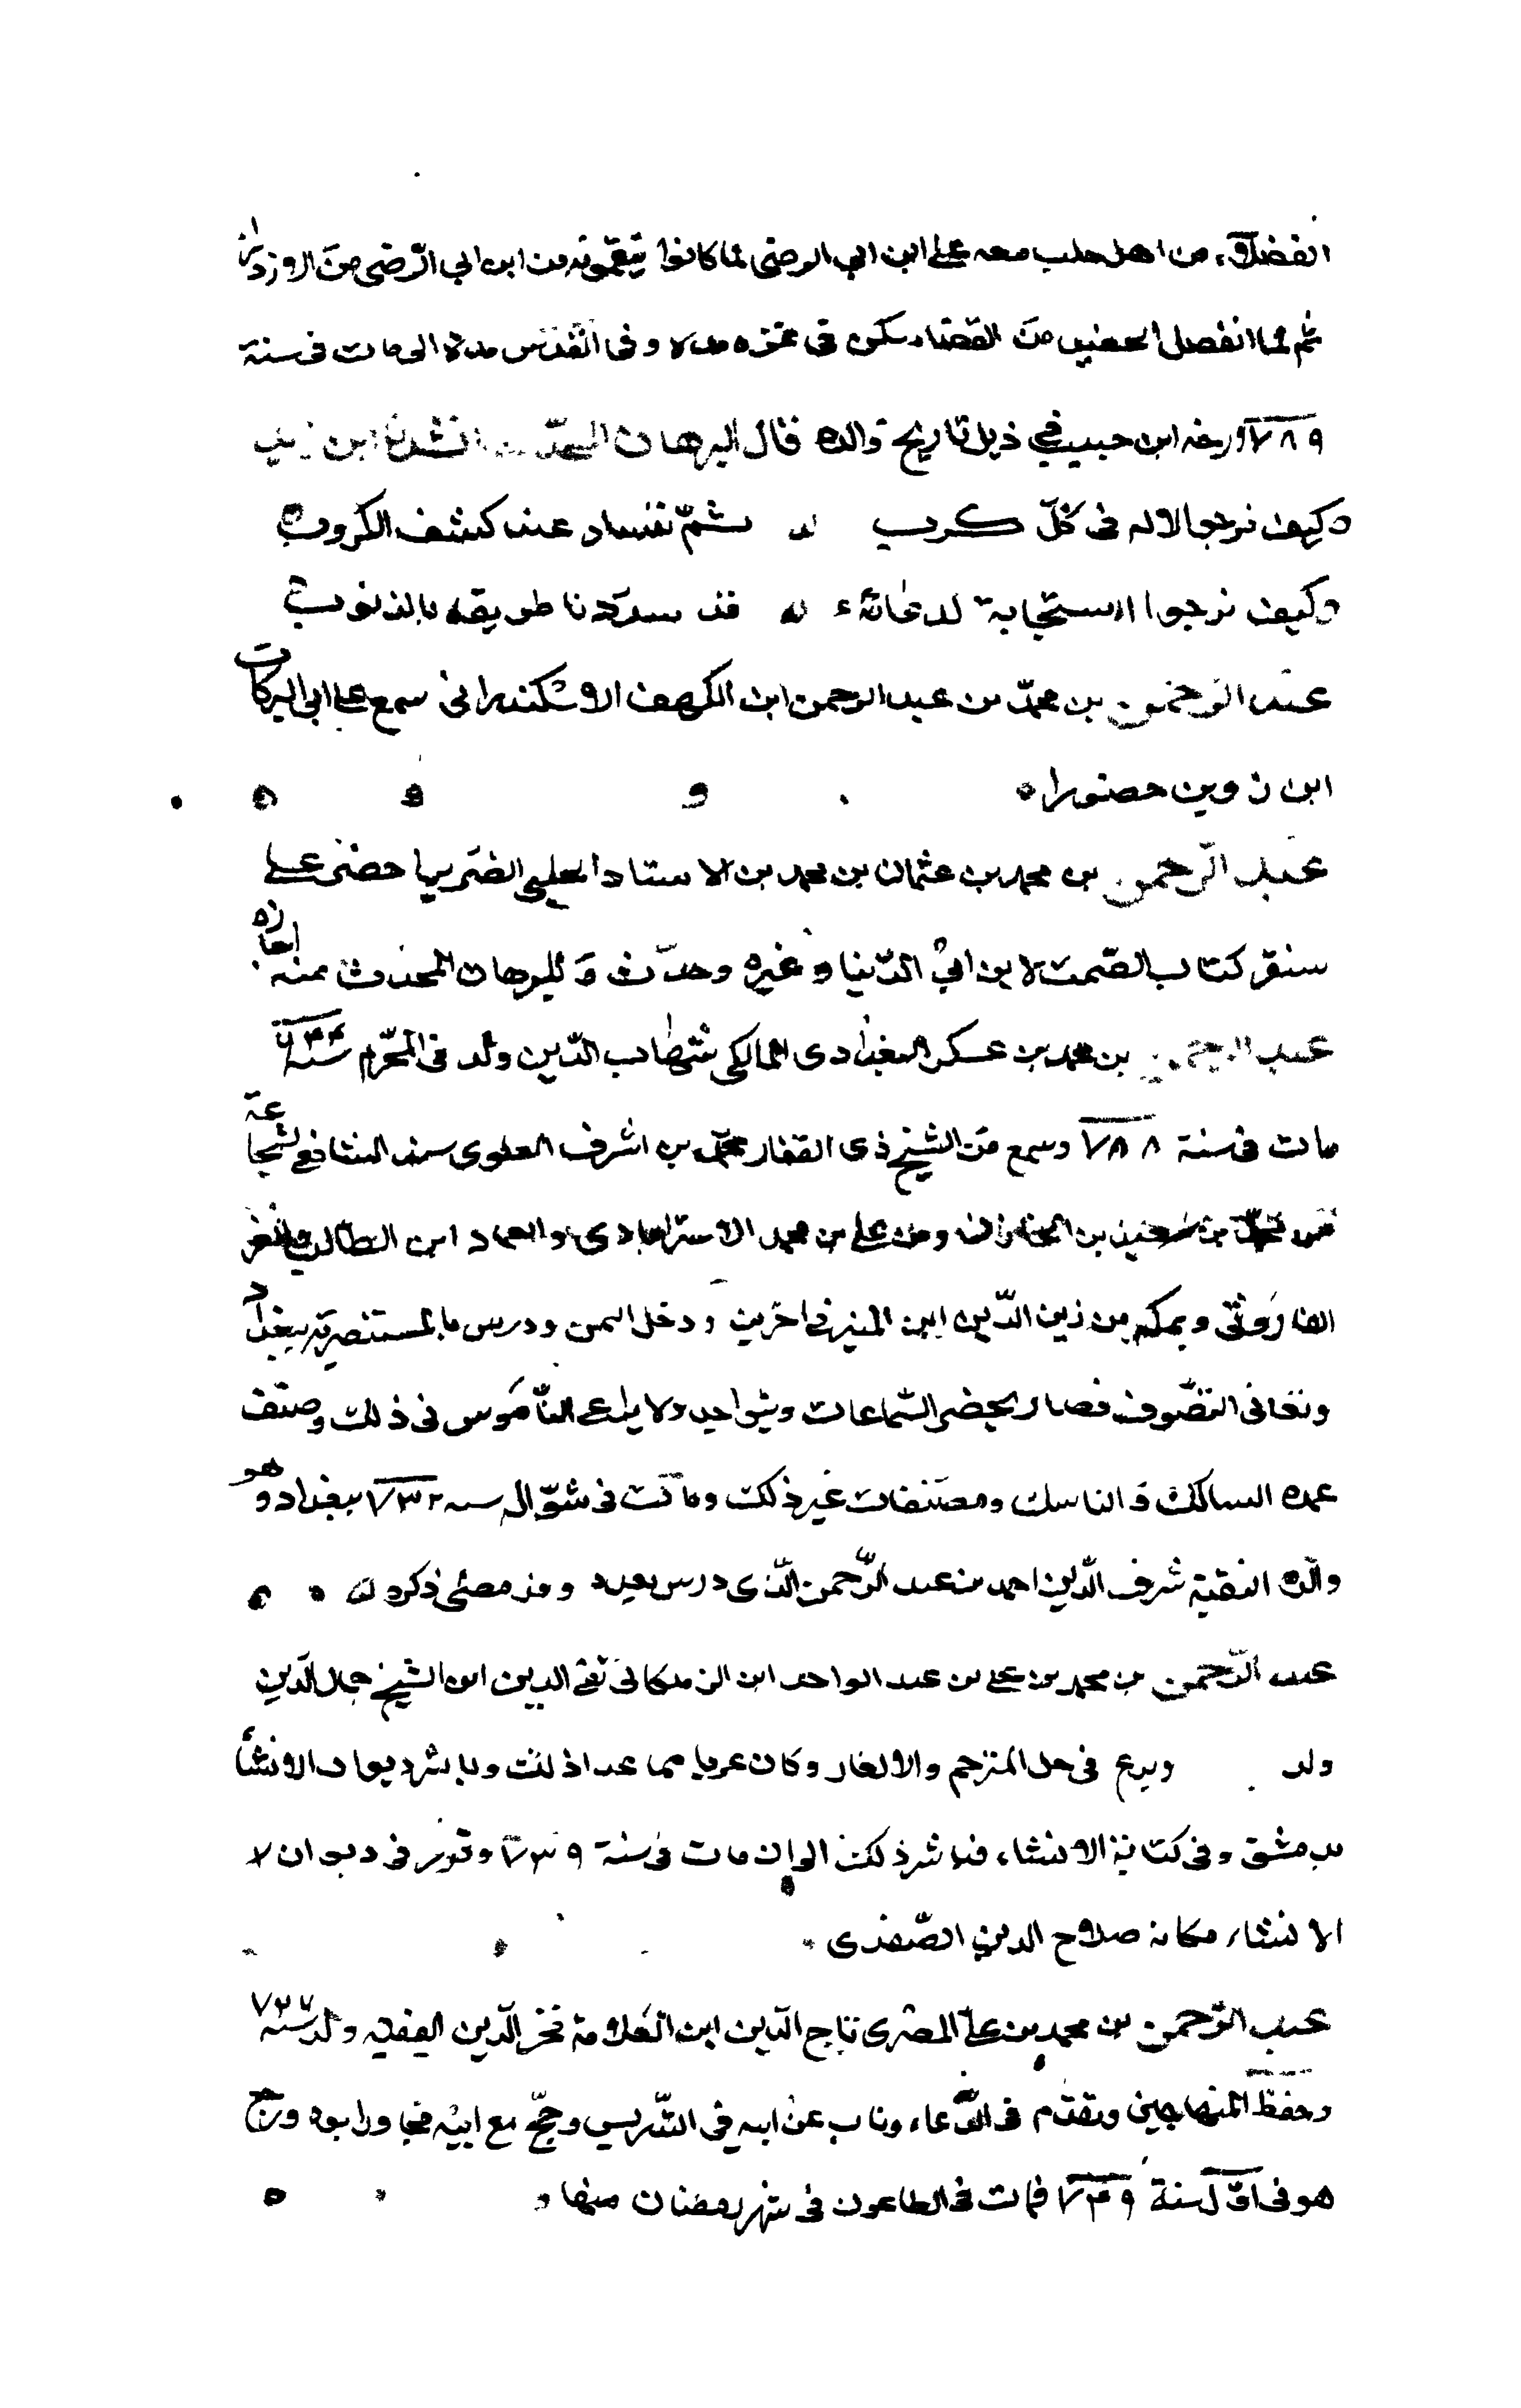 الفضلاء من اهل حلب معه على ابن ابي الرضى لما كانوا ينقمونه من ابن ابي الرضى من
ثم لما انفصل من القضاء سكن في غزه مدة وفي القدس مدة الى مات في سنة
٧٨٩ ورخه ابن حبيب في ذيل تاريخ والده قال البرهان المحدّث انشدنا ابن
وكيف نرجوا لاله في كلّ كرب ثمّ ننساه عند كشف الكروب
وكيف نرجوا استجابة لدعائه قد سددنا طريقه بالذنوب
عبد الرحمن بن محمّد بن عبد الرحمن ابن الكهف الاسكندراني سمع على ابي البركات
ابن زوين حضورا
عبد الرّحمن بن محمد بن عثمان بن محمد بن الاستاد الحلبي الضرير حضر على
سنقر كتاب الصّمت لابن ابي الدّنيا وغيره وحدّث وللبرهان المحدث منه اجازه
عبد الرحمن بن محمد بن عسكر البغدادى المالكي شهاب الدّين ولد في المحرّم سنة ٦٤٤
مات في سنة ٧٨٨ وسمع من الشيخ ذى الفقار محمّد بن اشرف العلوى مسند الشافعي لشجاعة
من محمّد بن بن ومن على بن محمد الاسترابادى والعماد ابن الطبال
الفاروثي وبمكه من زين الدّين ابن المنير في اخرين ودخل اليمن ودرس بالمستنصرية ببغداد
في التصّوف فصار يحضر السّماعات ويتواجد ولا يراعي النّاموس في ذلك وصنف
عمده السالك والناسك ومصنفات غير ذلك ومات في شوّال سنه ٧٣٢ ببغداد وهو
والد الفقيه شرف الدّين احمد بن عبد الرّحمن الّذى درس بعده وقد مضى ذكره
عبد الرّحمن بن محمد بن على بن عبد الواحد ابن الزملكانى تقي الدين ابن الشيخ جمال الدّين
ولد وبرع في حل المترجم والالغاز وكان عريا مما عدا ذلك وباشر ديوان الانشأ
بدمشق وفي كتابة الانشاء فباشر ذلك الى ان مات في سنة ٧٣٩ وقرر في ديوان
الانشاء مكانه صلاح الدين الصّفدى
عبد الرّحمن بن محمد بن علىّ المصرى تاج الدّين ابن العلامة فخر الدّين الفقيه ولد سنه ٧٢٧
وحفظ المنهاجين وتقدم في الدّعاء وناب عن ابيه في التدريس وحجّ مع ابيه فجاور ابوه ورجع
هو في اوّل سنة ٧٤٩ فمات في الطاعون في شهر رمضان منها